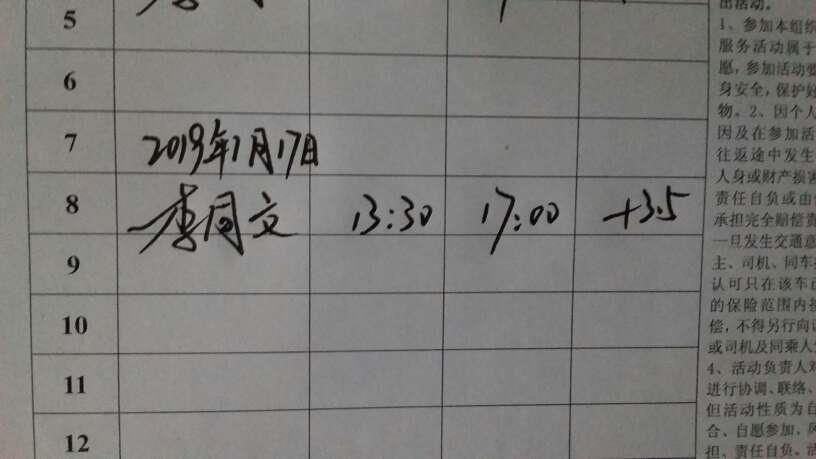 5
6
7 2019年1月17日
8 李同文 13:30 17:00 +3.5
9
10
11
12
出活动。
1、参加本组织
服务活动属于
愿，参加活动要
身安全，保护好
物。2、因个人
因及在参加活
往返途中发生
人身或财产损害
责任自负或由
承担完全赔偿责
一旦发生交通意
主、司机、同车
认可只在该车已
的保险范围内
偿，不得另行向
或司机及同乘人
4、活动负责人对
进行协调、联络、
但活动性质为自
合、自愿参加、风
担、责任自负。活